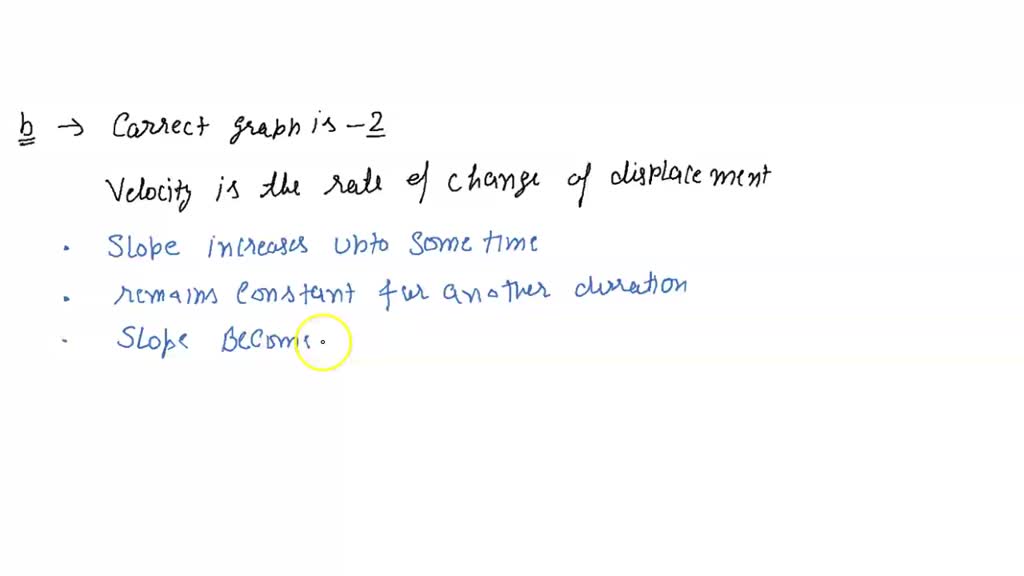 b → Carrect graph is - 2
Velocity is the rate of change of displacement
· Slope increases upto some time
· remains constant for another duration
· Slope Become